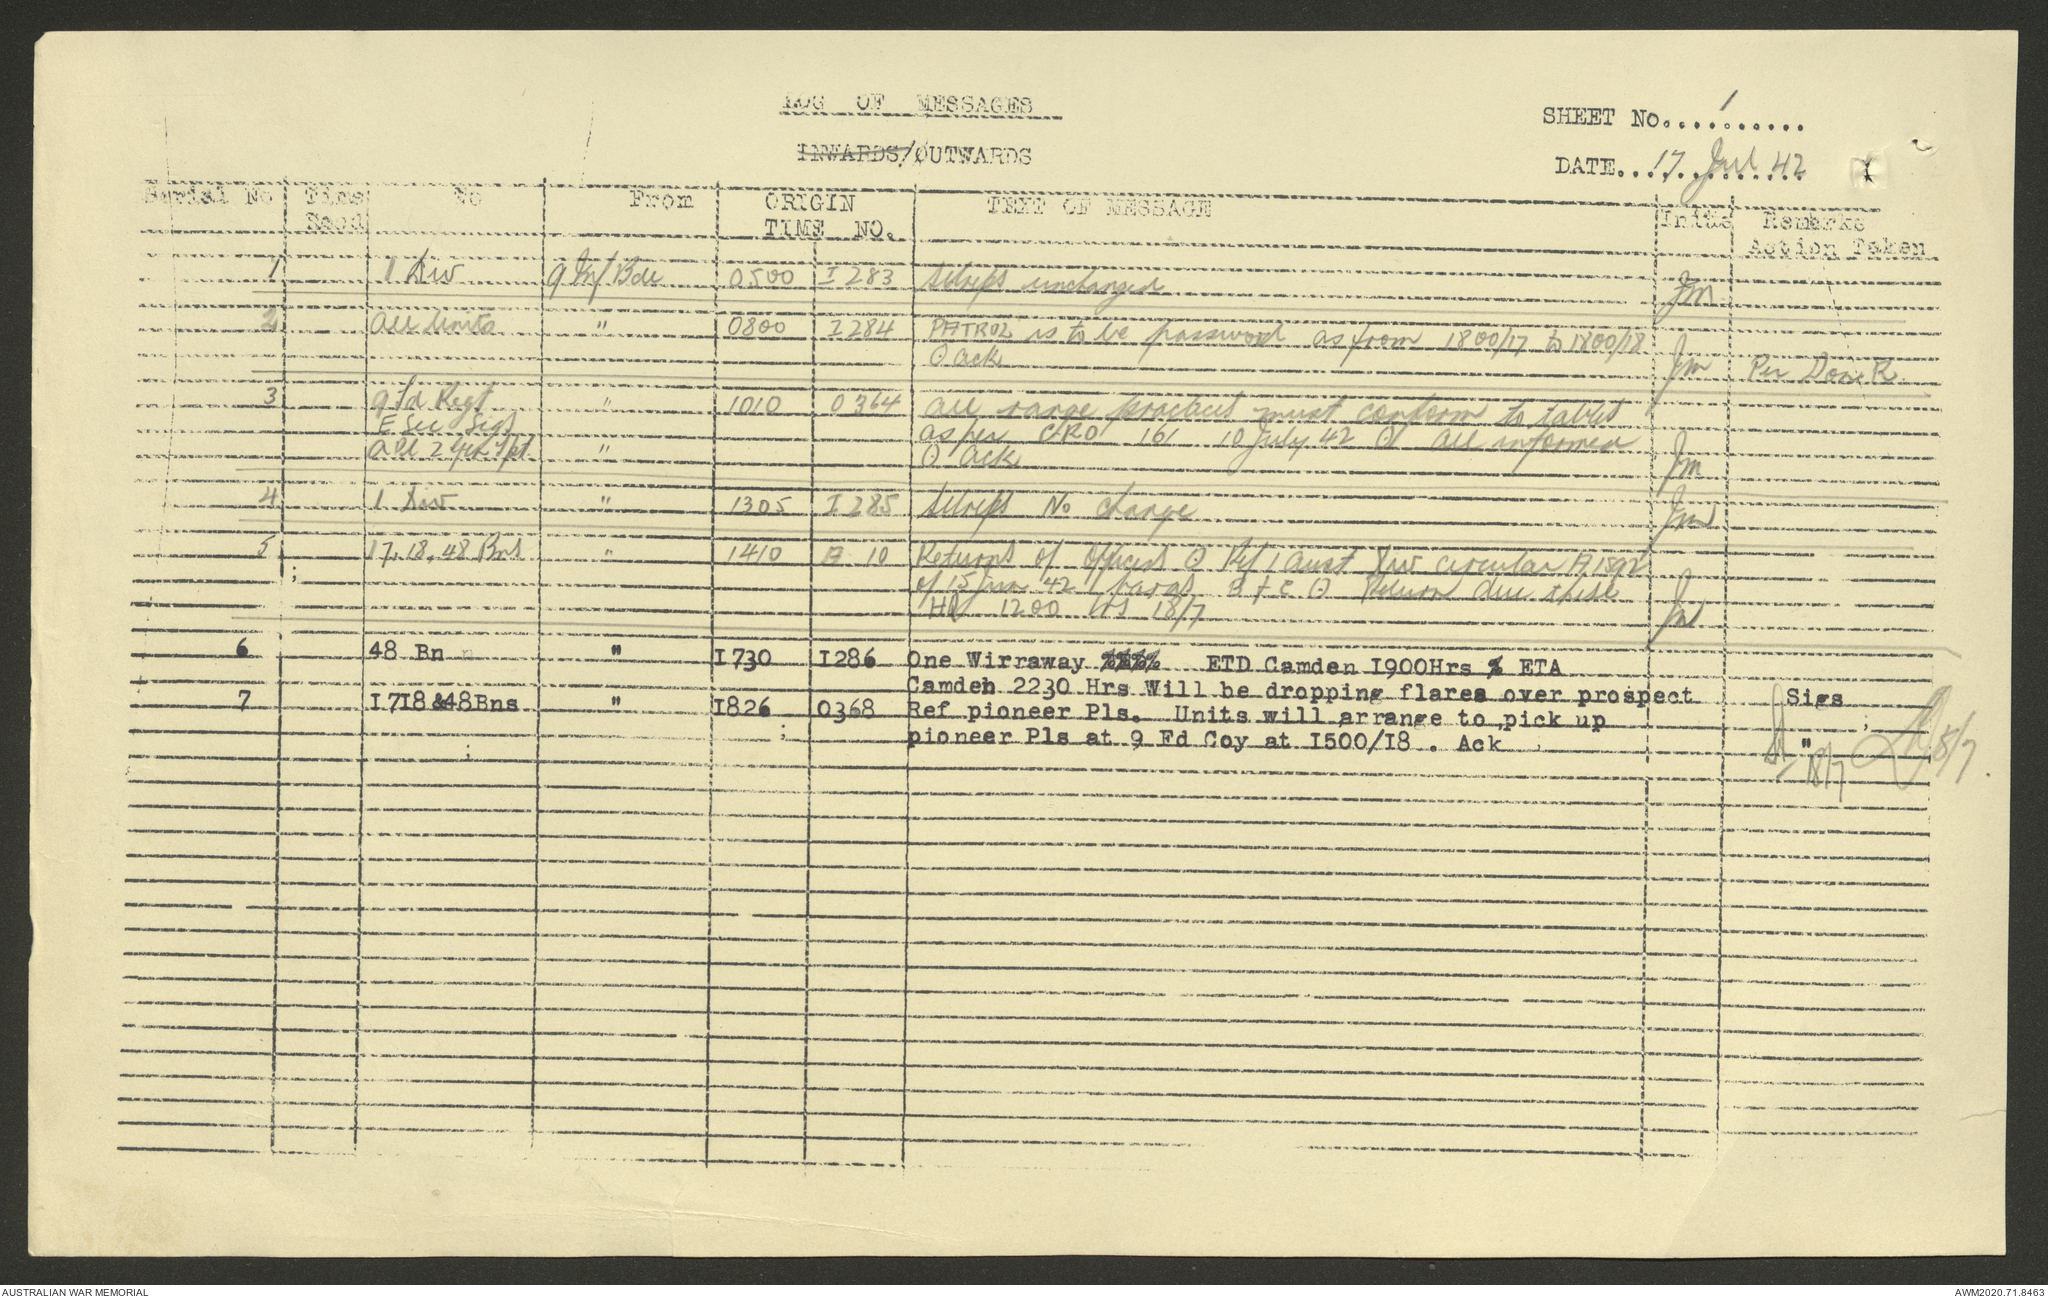 LOG OF MESSAGES
INWARDS/OUTWARDS
SHEET No...1.......
DATE..17 Jul 42
Serial No Time Recd To From ORIGIN TIME NO. TEXT OF MESSAGE Init's Remarks Action Taken
1 1 Div 9 Inf Bde 0500 I 283 Sitreps unchanged Jm
2 All Units " 0800 I 284 PATROL is to be password as from 1800/17 to 1800/18
O ack Jm Per Don R.
3 9 Fd Regt " 1010 O 364 All range practices must conform to tables
E Sec Sigs as per CRO 161 10 July 42 O all informed
All 2 Tpt " O ack Jm
4 1 Div " 1305 I 285 Sitreps No change Jm
5 17, 18, 48 Bns " 1410 A 10 Returns of Officers O Ref 1 Aust Div circular A 1592
of 15 Jun 42 paras B + C O Return due these
HQ 1200 hrs 18/7 Jm
6 48 Bn " I730 I286 One Wirraway ETD Camden I900Hrs ETA
Camden 2230 Hrs Will be dropping flares over prospect Sigs
7 I7I8 &48Bns " I826 O368 Ref pioneer Pls. Units will arrange to pick up
pioneer Pls at 9 Fd Coy at I500/I8 . Ack "
18/7 18/7.
AUSTRALIAN WAR MEMORIAL
AWM2020.71.8463